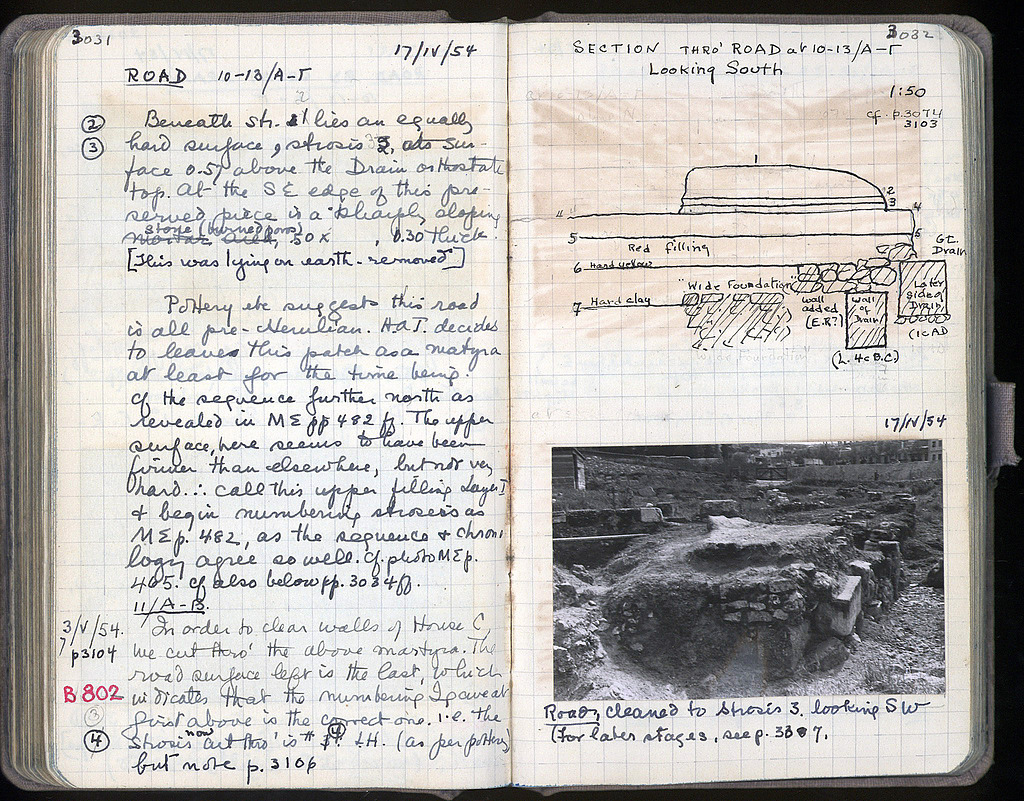 3031
17/IV/54
ROAD 10-13/A-Γ
2
② Beneath str. 1 lies an equally
③ hard surface, strosis 3, its sur-
face 0.57 above the Drain orthostate
top. At the SE edge of this pre-
served piece is a sharply sloping
stone (burned poros)
.50 x , 0.30 thick.
[This was lying on earth - removed]
Pottery etc suggests this road
is all pre-Herulian. HAT. decides
to leave this patch as a martyra
at least for the time being.
Cf the sequence further north as
revealed in ΜΣ pp 482 ff. The upper
surface, here seems to have been
firmer than elsewhere, but not very
hard. ∴ call this upper filling Layer I
& begin numbering stroseis as
ΜΣ p. 482, as the sequence & chrono
logy agree so well. Cf. photo ΜΣ p.
465. Cf also below pp. 3034 ff.
11/A-B.
3/V/54. In order to clear walls of House C
p3104 we cut thro' the above martyra. The
road surface left is the last, which
B 802 indicates that the numbering I gave at
③ first above is the correct one. i.e. the
④ Strosis now cut thro' is # ④ LH. (as per pottery)
but note p. 3106
3032
SECTION THRO' ROAD at 10-13/A-Γ
Looking South
1:50
cf. p. 3074
3103
1
2
3
4
5
Red filling
6
Gt.
Drain
6 Hard yellow
"Wide Foundation"
7 Hard clay
wall
added
(E.R?)
Wall
of
Drain
Later
side of
Drain
(1c AD
(L. 4c B.C.)
"Wide Foundation"
17/IV/54
Road, cleaned to strosis 3. looking SW
(For later stages, see p. 3087.